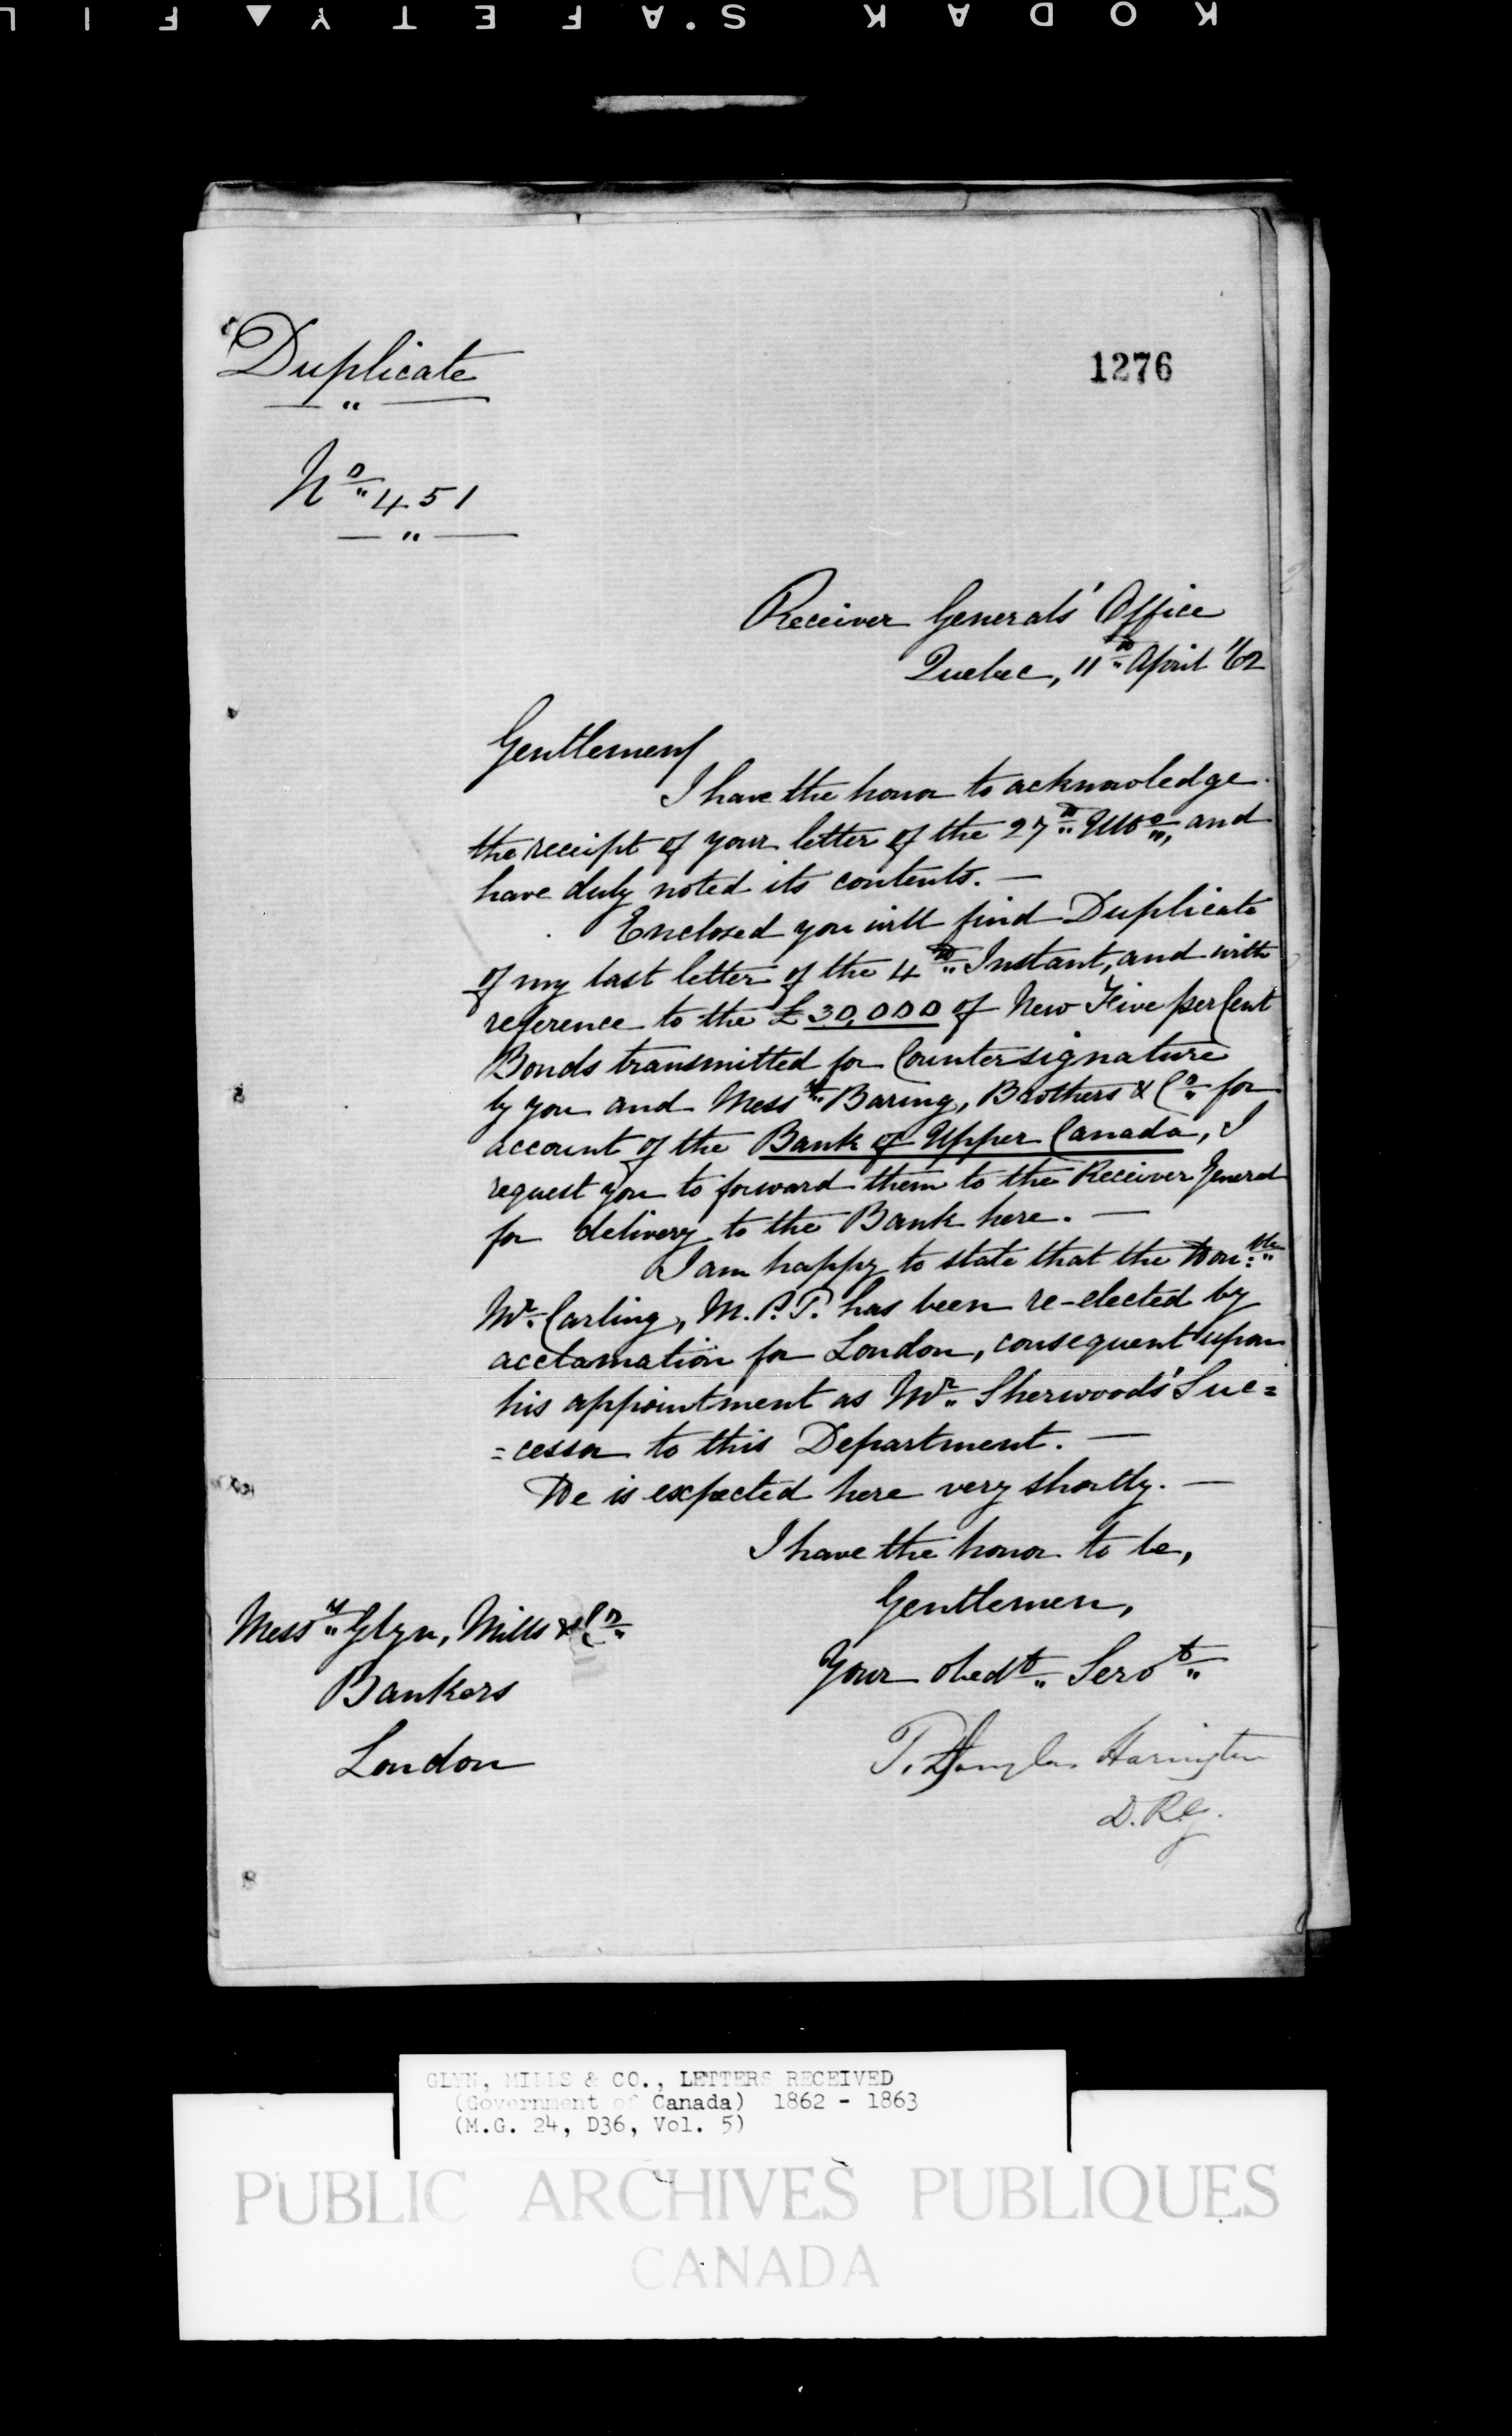 KODAK S'AFETY FIL
Duplicate
1276
No 451
Receiver Generals' Office
Quebec, 11th April '62
Gentlemen
I have the honor to acknowledge
the receipt of your letter of the 27th Ulto, and
have duly noted its contents. —
Enclosed you will find Duplicate
of my last letter of the 4th Instant, and with
reference to the £30,000 of New Five per Cent
Bonds transmitted for Countersignature
by you and Messrs Baring, Brothers & Co for
account of the Bank of Upper Canada, I
request you to forward them to the Receiver General
for delivery to the Bank here. —
I am happy to state that the Honble
Mr Carling, M.P.P. has been re-elected by
acclamation for London, consequent upon
his appointment as Mr Sherwoods' Suc=
=cessor to this Department. —
He is expected here very shortly. —
I have the honor to be,
Gentlemen,
Your obedt Servt
T. Douglas Harington
D.R.G.
Messrs Glyn, Mills & Co
Bankers
London
GLYN, MILLS & CO., LETTERS RECEIVED
(Government of Canada) 1862 - 1863
(M.G. 24, D36, Vol. 5)
PUBLIC ARCHIVES PUBLIQUES
CANADA